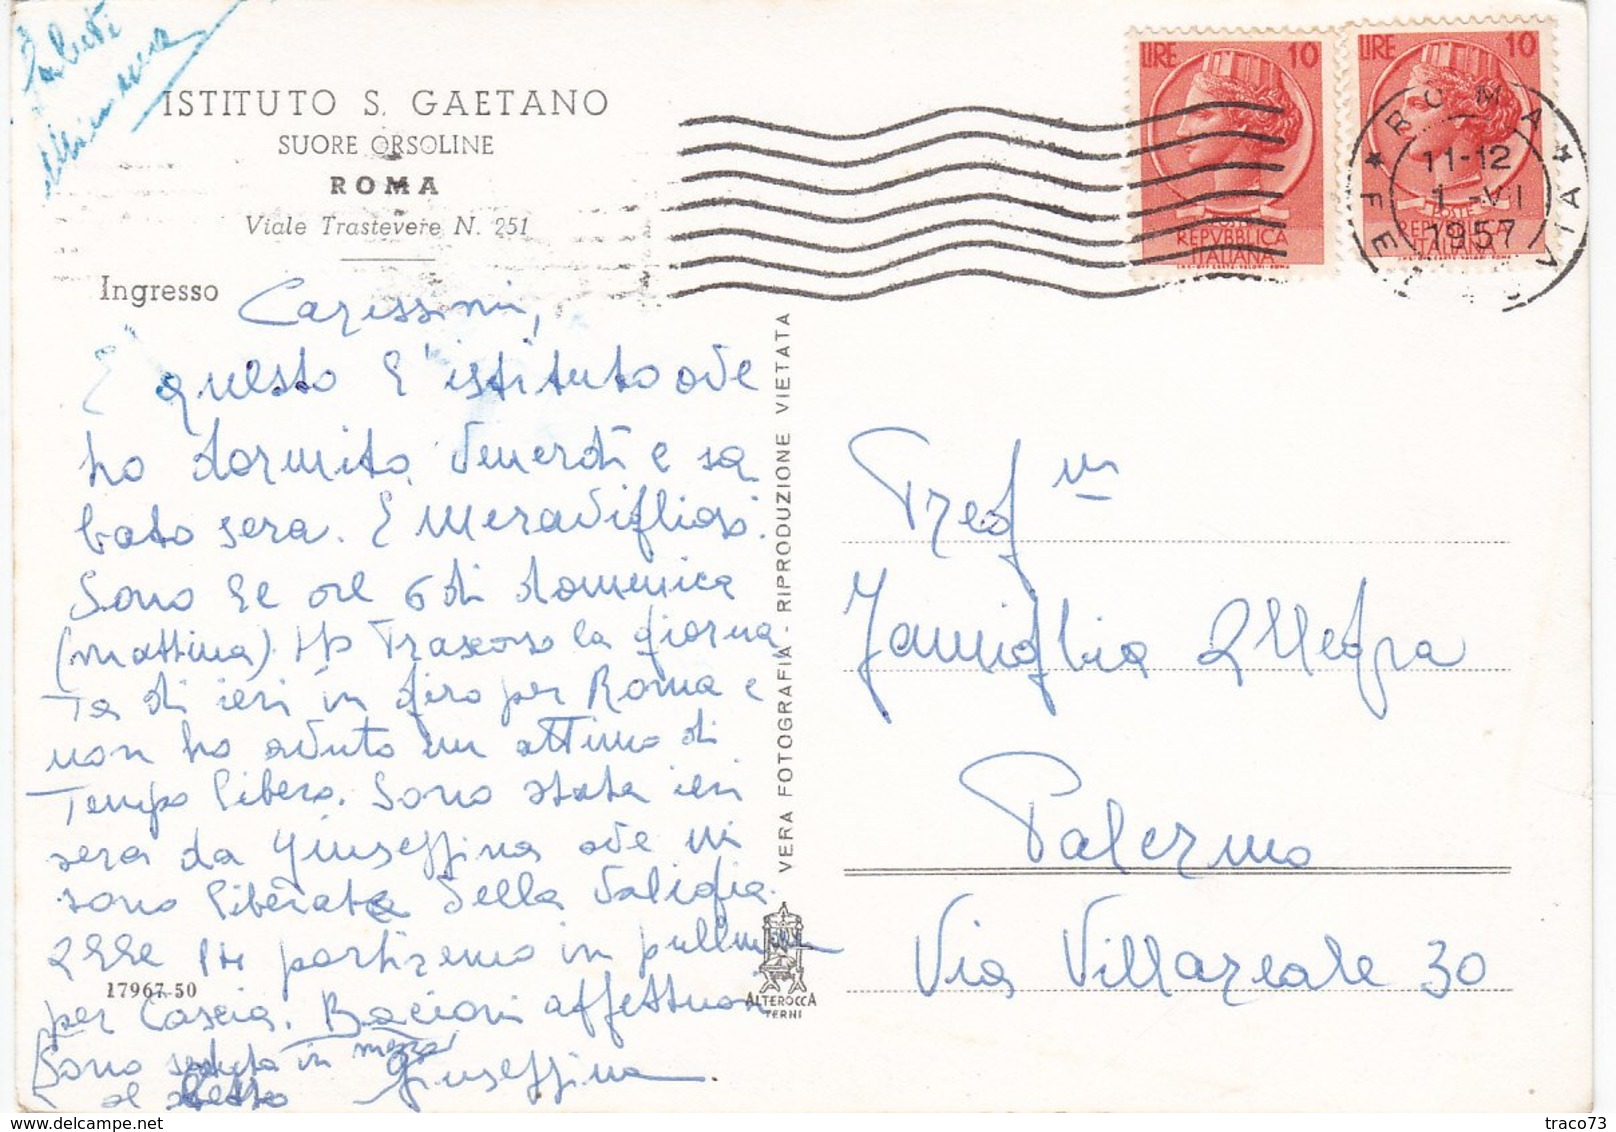 Saluti
ISTITUTO S. GAETANO
SUORE ORSOLINE
ROMA
Viale Trastevere N. 251
Ingresso
Carissimi,
E' questo l'istituto ove
ho dormito Venerdì e sa
bato sera. E meraviglioso.
Sono le ore 6 di domenica
(mattina). Ho Trascorso la giorna
Ta di ieri in giro per Roma e
non ho avuto un attimo di
Tempo libero. Sono stata ieri
sera da Giuseppina ove mi
sono liberata della valigia.
Alle 14 partiremo in pullman
per Cascia. Bacioni affettuosi
Giuseppina
Sono seduta in mezzo
al letto
17967-50
VERA FOTOGRAFIA - RIPRODUZIONE VIETATA
ALTEROCCA
TERNI
LIRE 10
POSTE
REPVBBLICA
ITALIANA
I.P.S.-OFF. CARTE-VALORI-ROMA
LIRE 10
POSTE
REPVBBLICA
ITALIANA
ROMA
11-12
1-VI
1957
Pregma
Famiglia Allegra
Palermo
Via Villareale 30
traco73